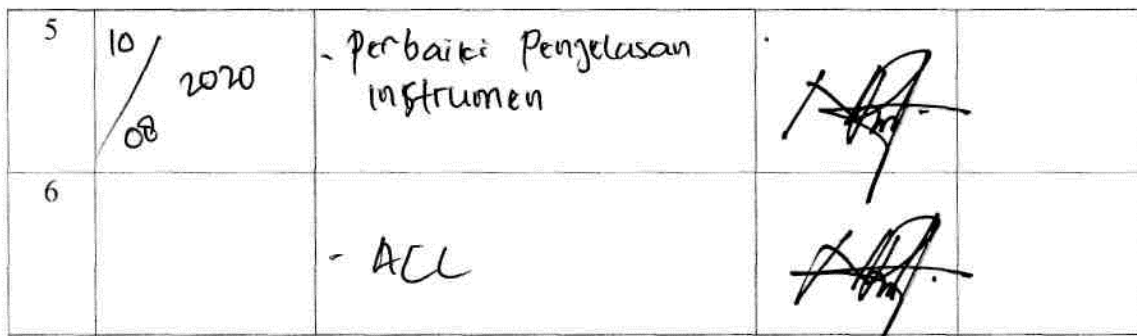 5
10/08 2020
- Perbaiki Penjelasan
instrumen
6
- ACC